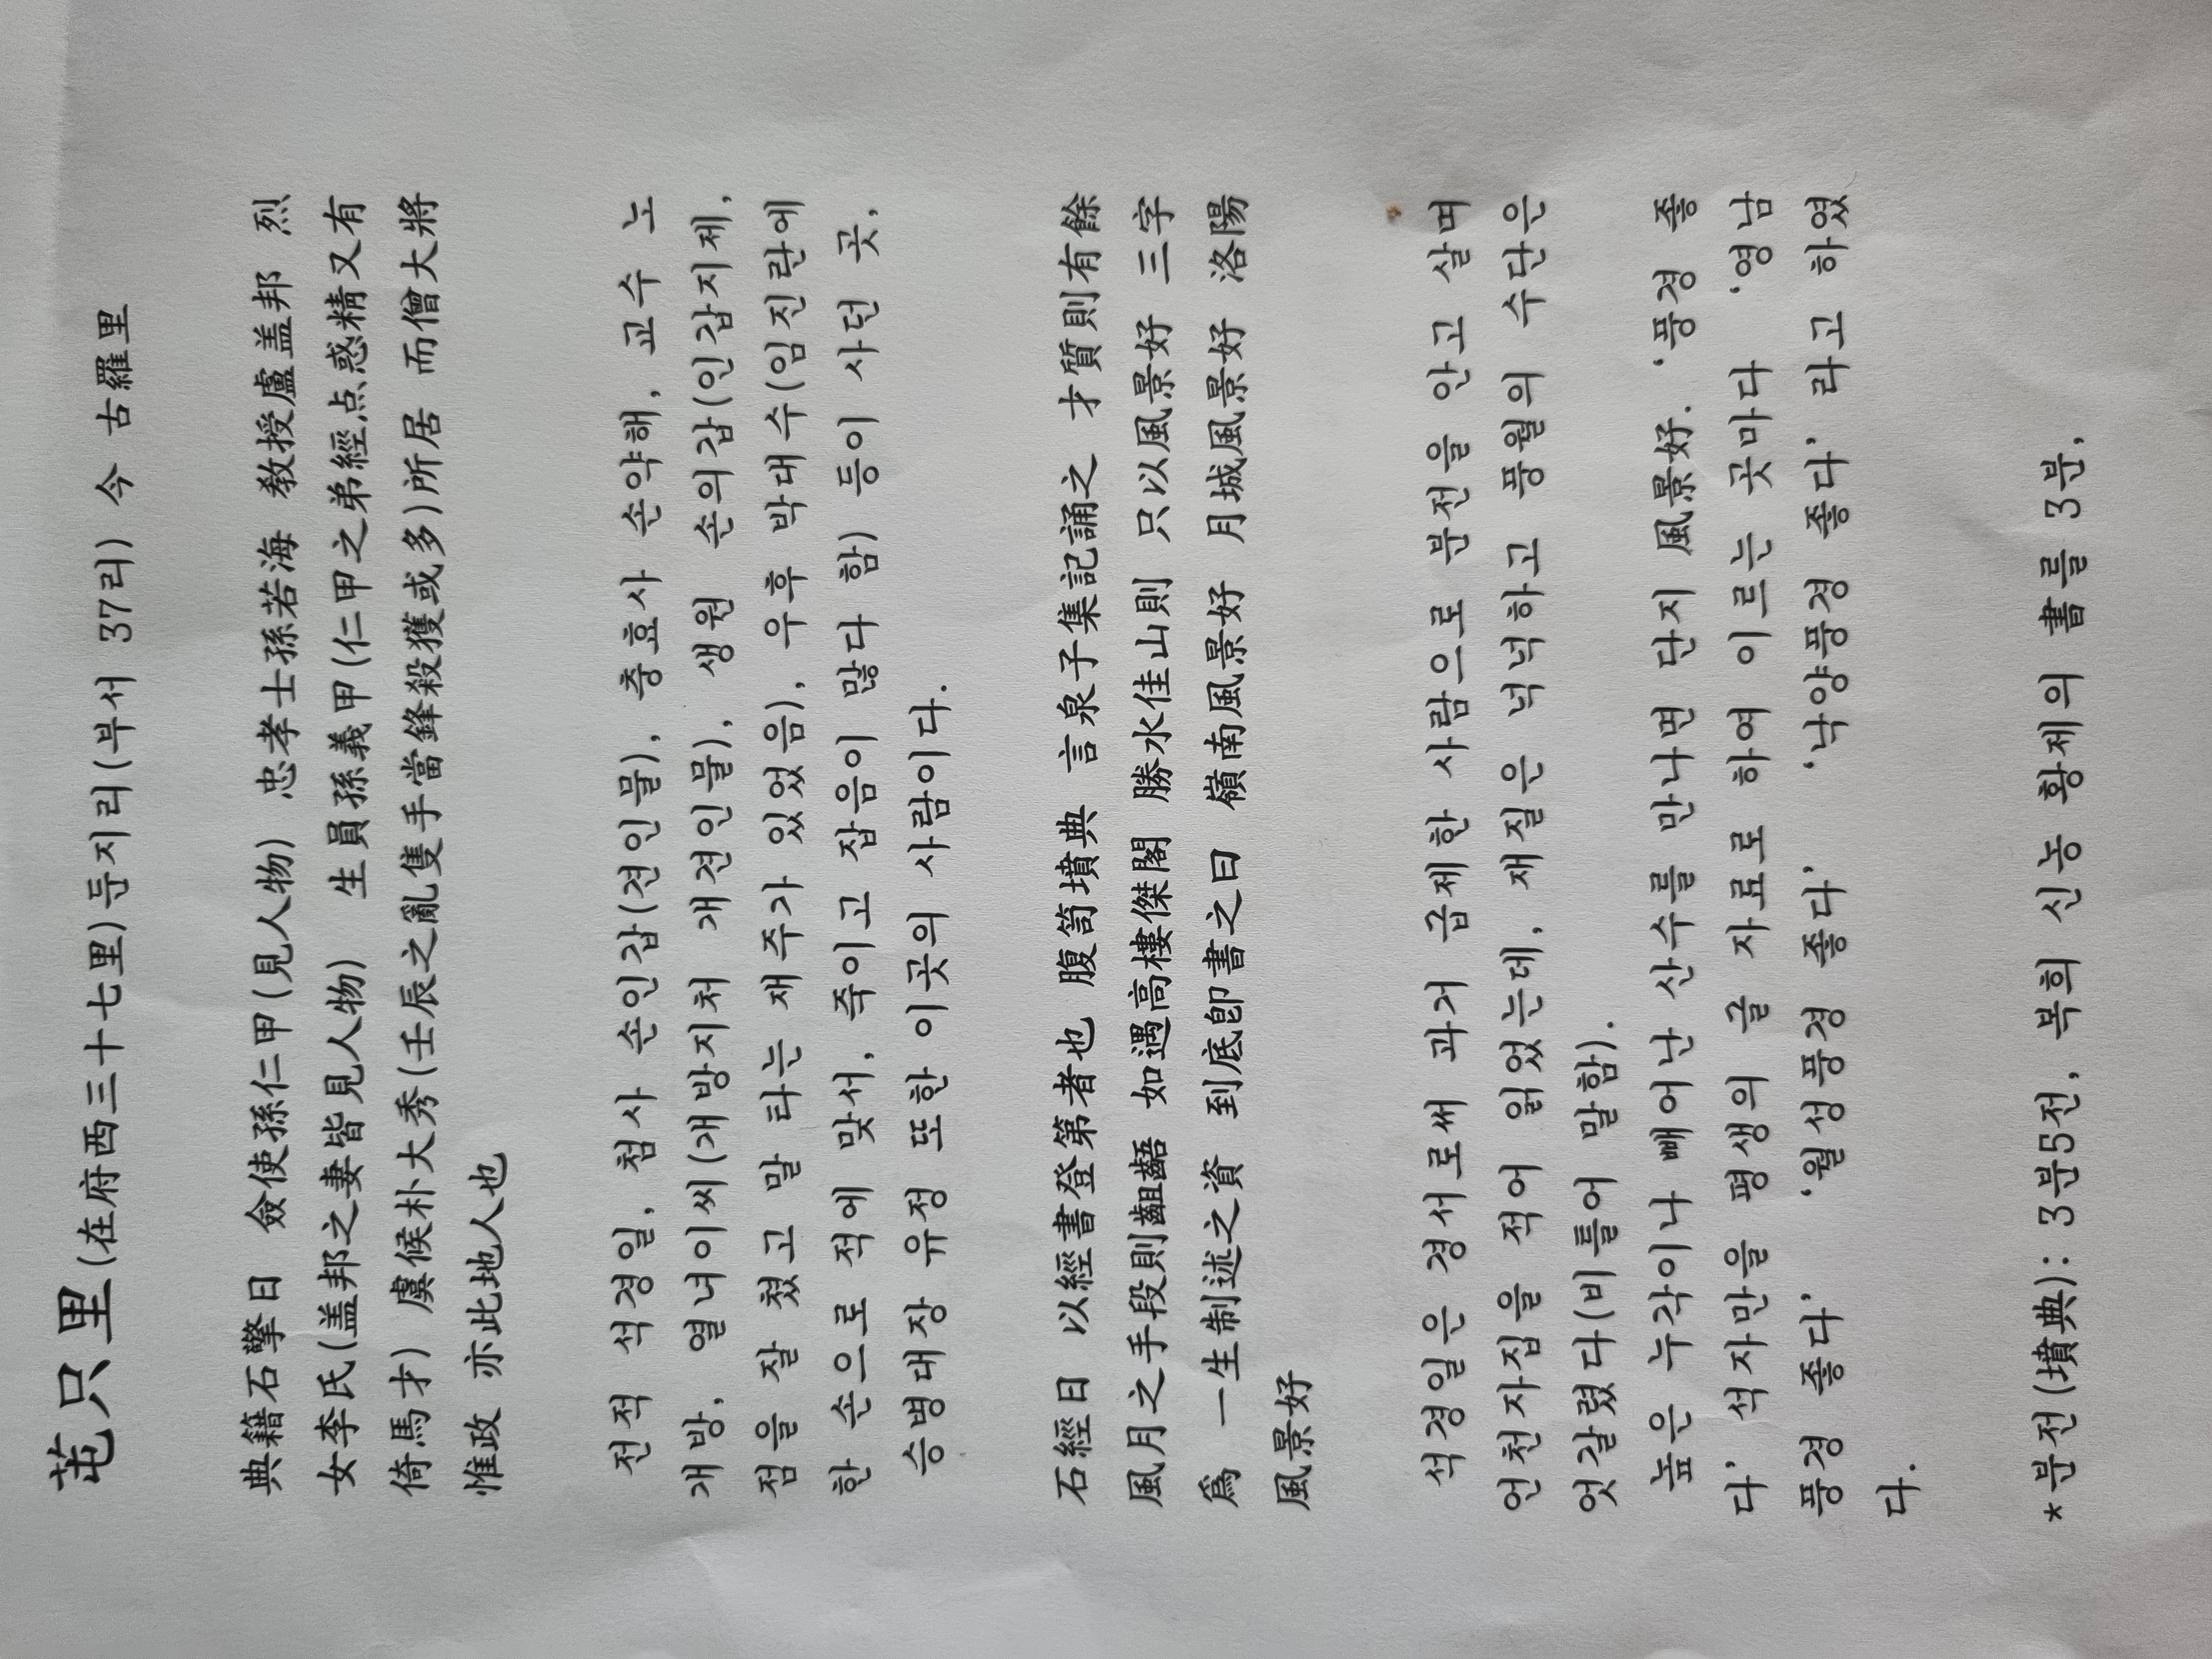 芚只里(在府西三十七里)둔지리(부서 37리) 今 古羅里
典籍石擎日 僉使孫仁甲(見人物) 忠孝士孫若海 敎授盧盖邦 烈
女李氏(盖邦之妻皆見人物) 生員孫義甲(仁甲之弟經点惑精又有
倚馬才) 虞候朴大秀(壬辰之亂隻手當鋒殺獲或多)所居 而僧大將
惟政 亦此地人也
전적 석경일, 첨사 손인갑(견인물), 충효사 손약해, 교수 노
개방, 열녀이씨(개방지처 개견인물), 생원 손의갑(인갑지제,
점을 잘 쳤고 말 타는 재주가 있었음), 우후 박대수(임진란에
한 손으로 적에 맞서, 죽이고 잡음이 많다 함) 등이 사던 곳,
승병대장 유정 또한 이곳의 사람이다.
石經日 以經書登第者也 腹笥墳典 言泉子集記誦之 才質則有餘
風月之手段則齟齬 如遇高樓傑閣 勝水佳山則 只以風景好 三字
爲 一生制述之資 到底卽書之曰 嶺南風景好 月城風景好 洛陽
風景好
석경일은 경서로써 과거 급제한 사람으로 분전을 안고 살며
언천자집을 적어 읽었는데, 재질은 넉넉하고 풍월의 수단은
엇갈렸다(비틀어 말함).
높은 누각이나 빼어난 산수를 만나면 단지 風景好. ‘풍경 좋
다’ 석자만을 평생의 글 자료로 하여 이르는 곳마다 ‘영남
풍경 좋다’ ‘월성풍경 좋다’ ‘낙양풍경 좋다’ 라고 하였
다.
*분전(墳典): 3분5전, 복희 신농 황제의 書를 3분,